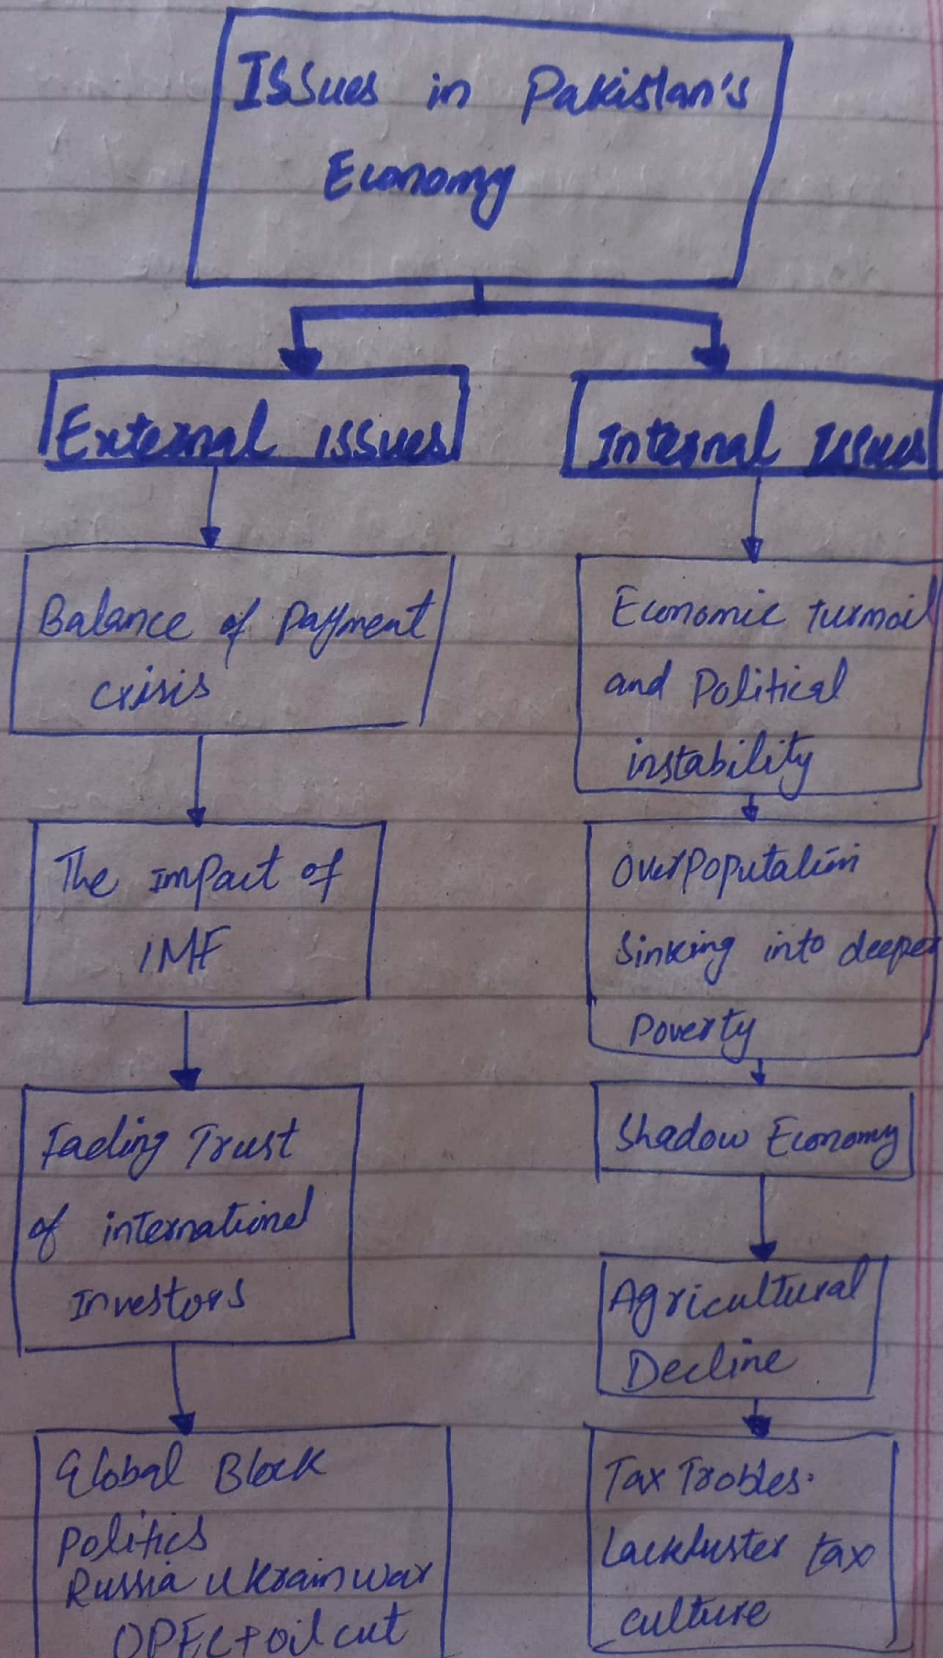 Issues in Pakistan's
Economy
External issues
Internal Issues
Balance of Payment
crisis
The impact of
IMF
Fading Trust
of international
Investors
Global Block
Politics
Russia ukrain war
OPEC+ oil cut
Economic turmoil
and Political
instability
Overpopulation
Sinking into deeper
Poverty
Shadow Economy
Agricultural
Decline
Tax Trobles.
Lackluster tax
culture